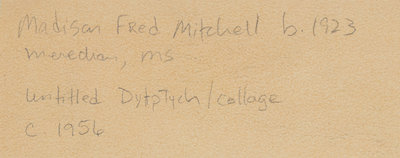 Madison Fred Mitchell b. 1923
Meredian, MS
Untitled Dytptych/collage
C. 1956